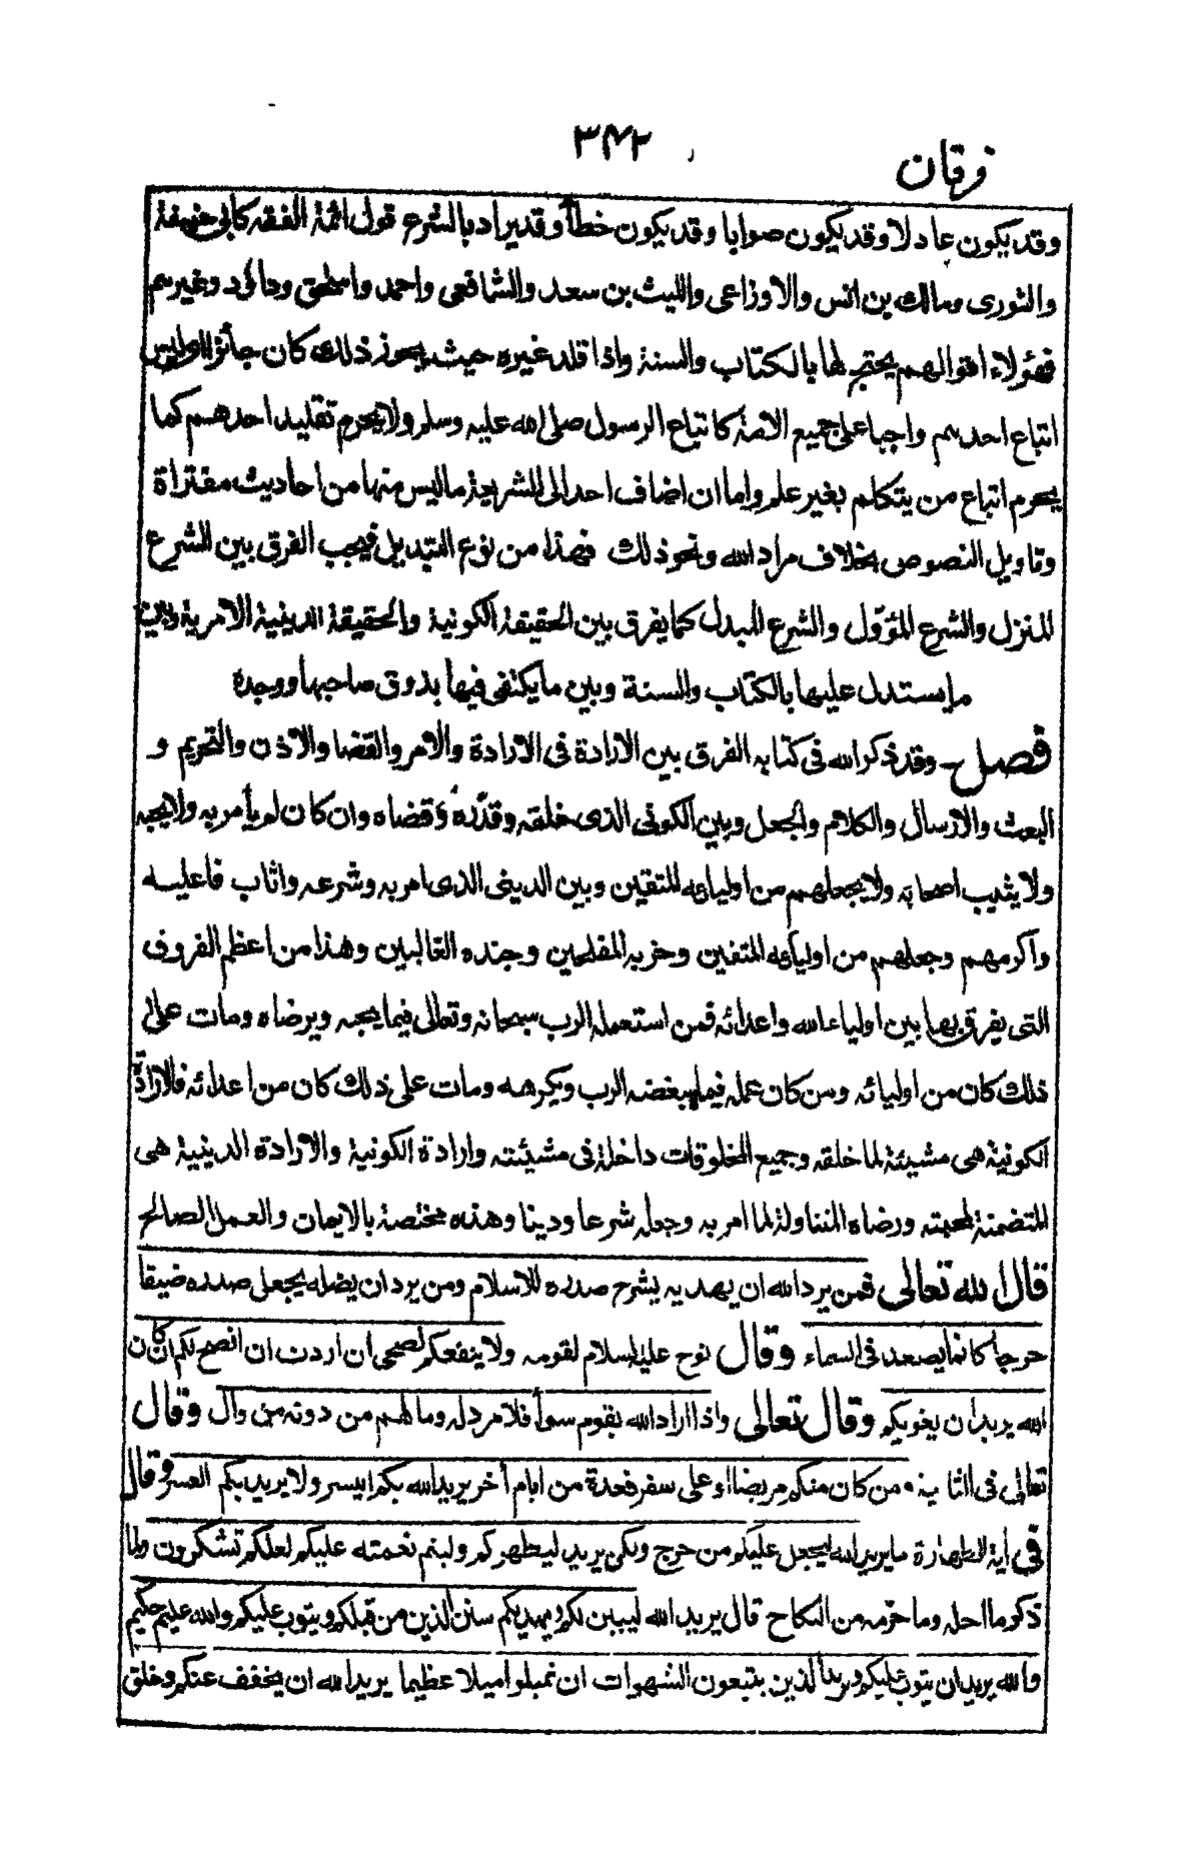 فرقان ۳۴۲
وقد يكون عادلا وقد يكون صوابا وقد يكون خطأ وقد يراد بالشرع قول ائمة الفقه كابى حنيفة
والثورى ومالك بن انس والاوزاعى والليث بن سعد والشافعى واحمد واسحق وداؤد وغيرهم
فهؤلاء اقوالهم يحتج لها بالكتاب والسنة واذا قلد غيره حيث يجوز ذلك كان جائزا وليس
اتباع احدهم واجبا على جميع الامة كاتباع الرسول صلى الله عليه وسلم ولا يحرم تقليد احدهم كما
يحرم اتباع من يتكلم بغير علم واما ان اضاف احد الى الشريعة ما ليس منها من احاديث مفتراة
وتاويل النصوص بخلاف مراد الله ونحو ذلك فهذا من نوع التبديل فيجب الفرق بين الشرع
المنزل والشرع المؤوّل والشرع المبدل كما يفرق بين الحقيقة الكونية والحقيقة الدينية الامرية وبين
ما يستدل عليها بالكتاب والسنة وبين ما يكتفى فيها بذوق صاحبها ووجده
فصل۔ وقد ذكر الله فى كتابه الفرق بين الارادة فى الارادة والامر والقضا والاذن والتحريم و
البعث والارسال والكلام والجعل وبين الكونى الذى خلقه وقدّره وقضاه وان كان لم يأمر به ولا يحبه
ولا يثيب اصحابه ولا يجعلهم من اوليائه المتقين وبين الدينى الذى امر به وشرعه واثاب فاعليه
واكرمهم وجعلهم من اوليائه المتقين وحزبه المفلحين وجنده الغالبين وهذا من اعظم الفروق
التى يفرق بها بين اولياء الله واعدائه فمن استعمله الرب سبحانه وتعالى فيما يحبه ويرضاه ومات على
ذلك كان من اوليائه ومن كان عمله فيما يبغضه الرب ويكرهه ومات على ذلك كان من اعدائه فالارادة
الكونية هى مشيئة لما خلقه وجميع المخلوقات داخلة فى مشيئته وارادة الكونية والارادة الدينية هى
المتضمنة لمحبته ورضاه المتناولة لما امر به وجعله شرعا ودينا وهذه مختصة بالايمان والعمل الصالح
قال الله تعالى فمن يرد الله ان يهديه يشرح صدره للاسلام ومن يرد ان يضله يجعل صدره ضيقا
حرجا كانما يصعد فى السماء وقال نوح عليه السلام لقومه ولا ينفعكم نصحى ان اردت ان انصح لكم ان كان
الله يريد ان يغويكم وقال تعالى واذا اراد الله بقوم سوأ فلا مرد له وما لهم من دونه من وال وقال
تعالى فى الثانية ومن كان منكم مريضا او على سفر فعدة من ايام أخر يريد الله بكم اليسر ولا يريد بكم العسر وقال
فى أية الطهارة ما يريد الله ليجعل عليكم من حرج ولكن يريد ليطهركم وليتم نعمته عليكم لعلكم تشكرون ولما
ذكر ما احله وما حرّمه من النكاح قال يريد الله ليبين لكم ويهديكم سنن الذين من قبلكم ويتوب عليكم والله عليم حكيم
والله يريد ان يتوب عليكم ويريد الذين يتبعون الشهوات ان تميلوا ميلا عظيما يريد الله ان يخفف عنكم وخلق